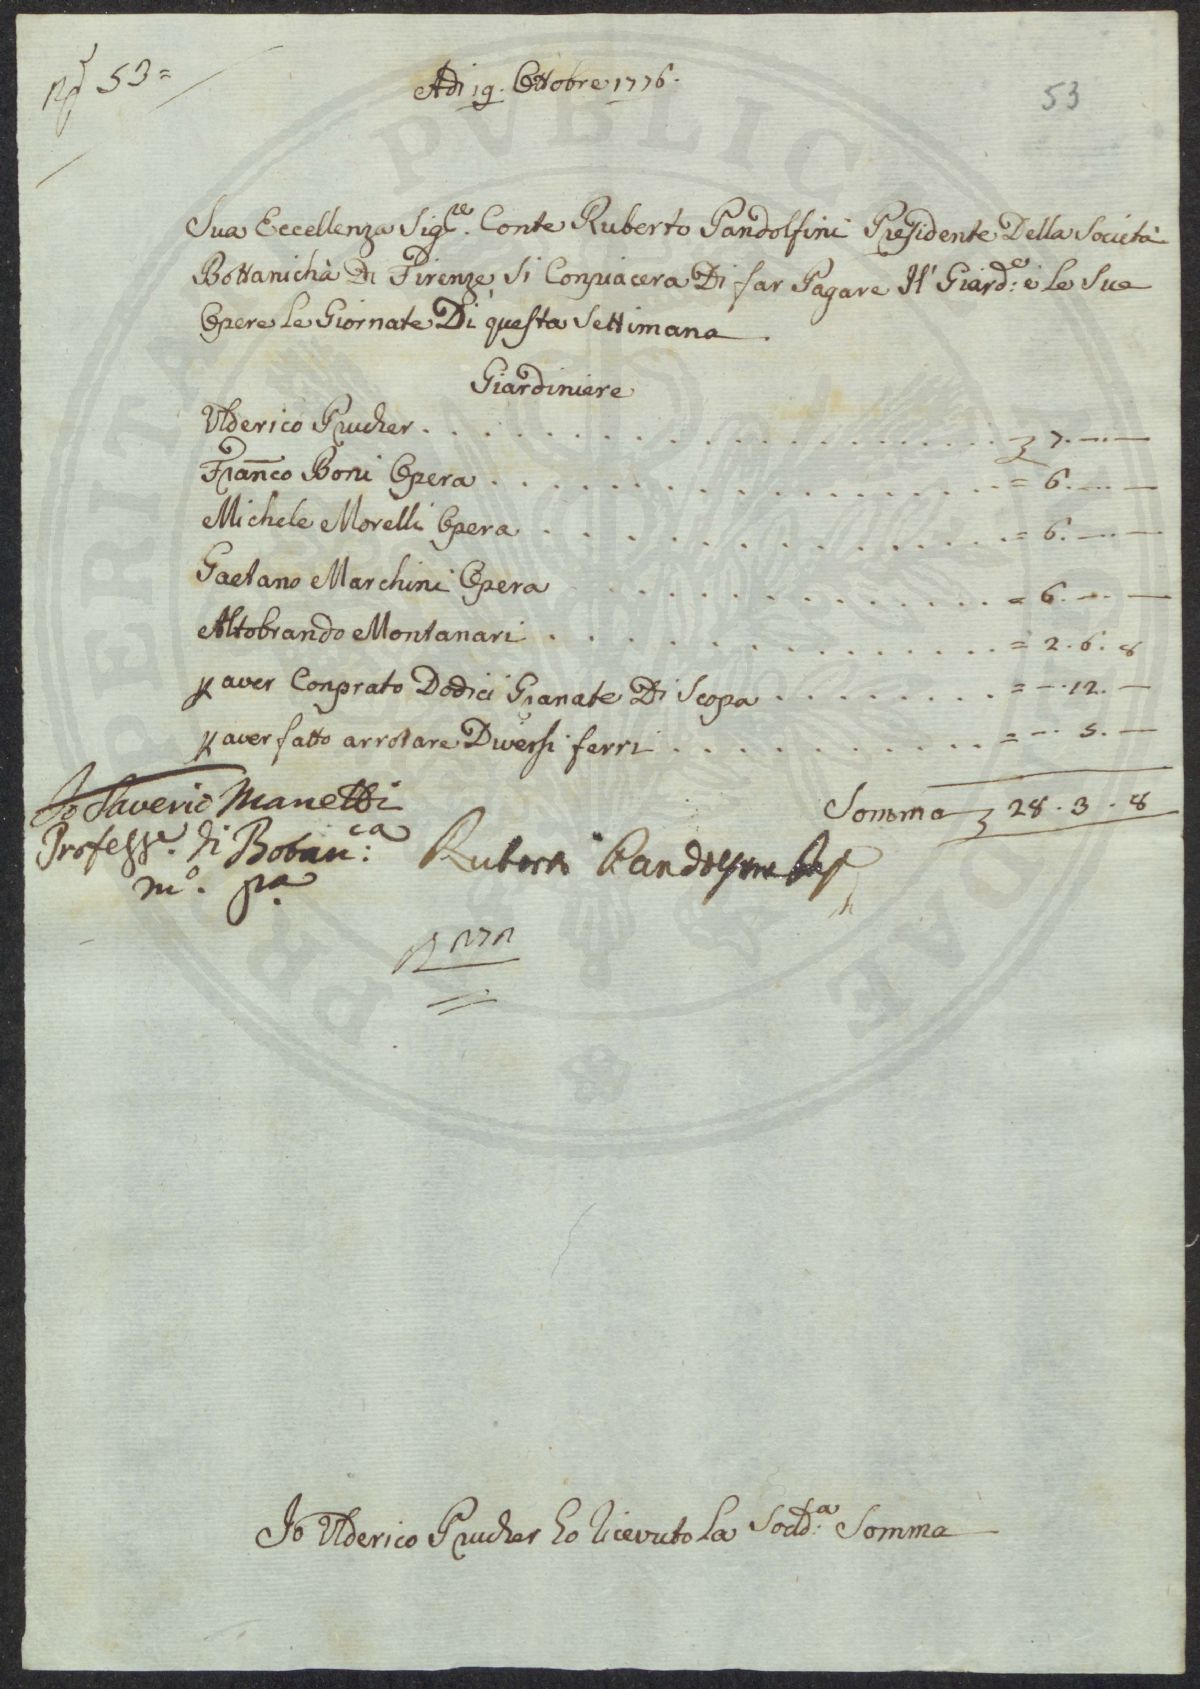 N 53=
Adi 19. Ottobre 1776.
53
Sua Eccellenza Sig.re Conte Ruberto Pandolfini Presidente Della Società
Bottanichà Di Firenze si Conpiacera Di far Pagare Il Giard.e e le Sue
Opere le Giornate Di questa Settimana
Giardiniere
Ulderico Prucher . . . . . . . . . . . . . . . . . 7. — —
Fran.co Boni Opera . . . . . . . . . . . . . . . . = 6. — —
Michele Morelli Opera . . . . . . . . . . . . . . = 6. — —
Gaetano Marchini Opera . . . . . . . . . . . . . = 6. — —
Altobrando Montanari . . . . . . . . . . . . . . = 2. 6. 8
p aver Conprato Dodici Granate Di Scopa . . . . . . . = — . 12. —
p aver fatto arrotare Diversi ferri . . . . . . . . . . = — . 5. —
Somma 28. 3. 8
Io Saverio Manetti
Profess.e di Botan.ca
m.o p.a
Ruberto Pandolfini
Io Ulderico Prucher ho ricevuto la Sod.a Somma
PVBLICAE
PROSPERITATI